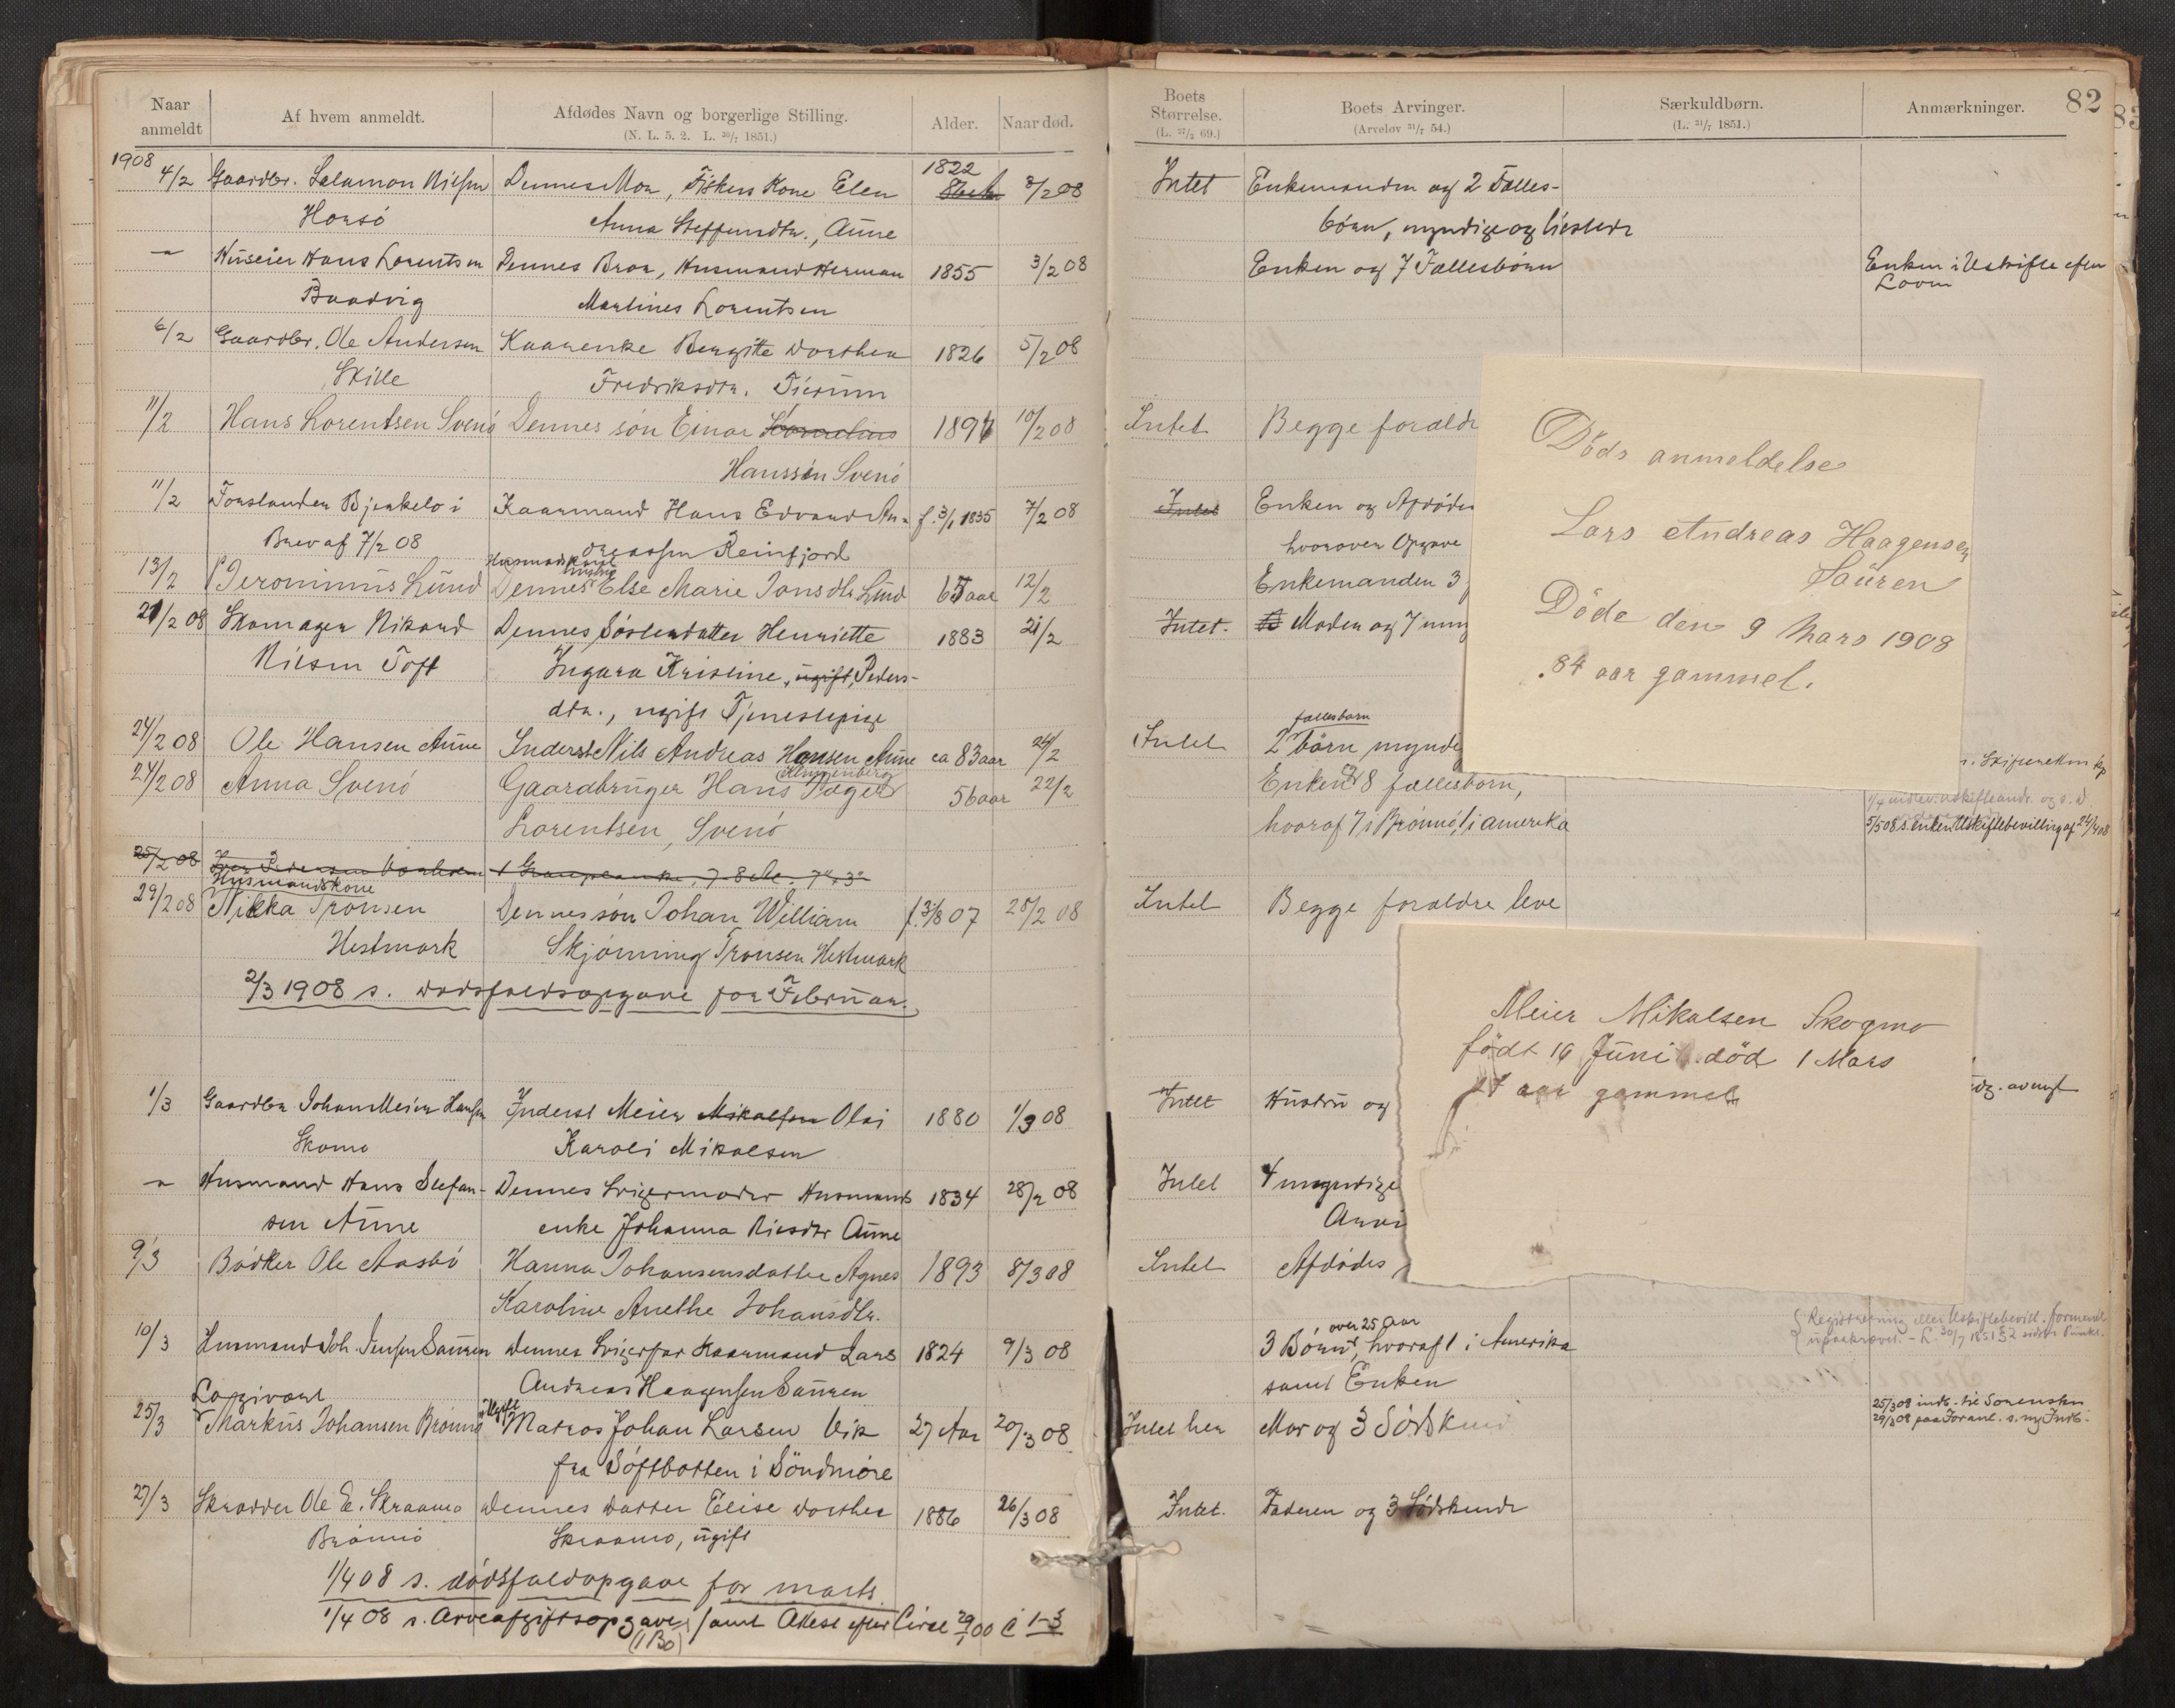 Naar anmeldt
Af hvem anmeldt.
Afdødes Navn og borgerlige Stilling.
(N. L. 5. 2. L. 30/7 1851.)
Alder.
Naar død.
Boets Størrelse.
(L. 27/3 69.)
Boets Arvinger.
(Arvelov 31/7 54.)
Særkuldbørn.
(L. 31/7 1851.)
Anmærkninger.
82
1908
4/2 Gaardbr. Salamon Nilsen Dennes Mor, Fiskers Kone Elen 1822 3/2 08 Intet Enkemanden og 2 Fælles-
Horsö Anna Steffensdtr., Aune börn, myndige og tilstede
" Huseier Hans Lorentsen Dennes Bror, Husmand Herman 1855 3/2 08 Enken og 7 Fællesbörn Enken i Uskifte efter
Baadvig Marlines Lorentsen Loven
6/2 Gaardbr. Ole Andersen Kaarenke Bergitte Dorthea 1826 5/2 08
Skille Fredriksdtr. Tierum
11/2 Hans Lorentsen Svenö Dennes sön Einar Kornelius 1897 10/2 08 Intet Begge foræld
Hanssen Svenö
11/2 Forstander Bjerkelo i Kaarmand Hans Edvard An- f. 3/1 1835 7/2 08 Intet Enken og Afdödes
Brev af 7/2 08 dreassen Reinfjord hvorover Opgave
Husmandskone
13/2 Jeronimus Lund Dennes hustru Else Marie Jonsdtr Lund 65 aar 12/2 Enkemanden 3
21/2 08 Skomager Rikard Dennes Søsterdatter Henriette 1883 21/2 Intet. Moder og 7
Nilsen Toft Ingara Kristine, ugift, Peders-
dtr., ugift Tjenestepige
24/2 08 Ole Hansen Aune Inderst Nils Andreas Hansen Aune ca 83 aar 24/2 Intet 2 fællesbarn börn, mynd
24/2 08 Anna Svenö Gaardbruger Hans Jæger Klingenberg 56 aar 22/2 Enken og 8 fællesbarn,
Lorentsen, Svenö hvoraf 7 i Brönnö, 1 i amerika 5/5 08 s. enken Uskiftebevilling af 24/4 08
25/2 08
Husmandskone
29/2 08 Nikka Tronsen Dennes sön Johan William f. 3/8 07 28/2 08 Intet Begge forældre leve
Hestmark Skjönning Tronsen Hestmark
2/3 1908 s. dødsfaldsopgave for Februar.
1/3 Gaardbr Johan Meier Hansen Inderst Meier Mikalsen Olai 1880 1/3 08 Intet Hustru og
Skomo Karoli Mikalsen
" Husmand Hans Stefan- Dennes Svigermoder Husmands 1834 28/2 08 Intet 4 myndige
sen Aune enke Johanna Nilsdtr Aune Arvi
9/3 Bödker Ole Aasbö Hanna Johansensdatter Agnes 1893 8/3 08 Intet Afdødes
Karoline Anethe Johansdtr.
10/3 Husmand Joh. Jensen Sauren Dennes Svigerfar Kaarmand Lars 1824 9/3 08 3 Börn over 25 Aar, hvoraf 1 i Amerika
Andreas Haagensen Sauren samt Enken
Logivært
25/3 Markus Johansen Brönnö Ugift Matros Johan Larsen Vik 27 Aar 20/3 08 Intet her Mor og 3 Södskend 25/3 08 indb. til Sorensk.
fra Söftbotten i Söndmöre
27/3 Skrædder Ole E. Skraamo Dennes datter Elise Dorthea 1886 26/3 08 Intet. Faderen og 3 Södskende
Brönnö Skraamo, ugift
1/4 08 s. dödsfaldopgave for marts.
1/4 08 s. Arveafgiftsopgave, samt Attest efter Circ 29/1 00 C 1-3
(1 Bo)
Döds anmeldelse
Lars Andreas Haagensen
Sauren
Döde den 9 Mars 1908
84 aar gammel.
Meier Mikalsen Skogmo
födt 16 Juni död 1 Mars
27 aar gammel